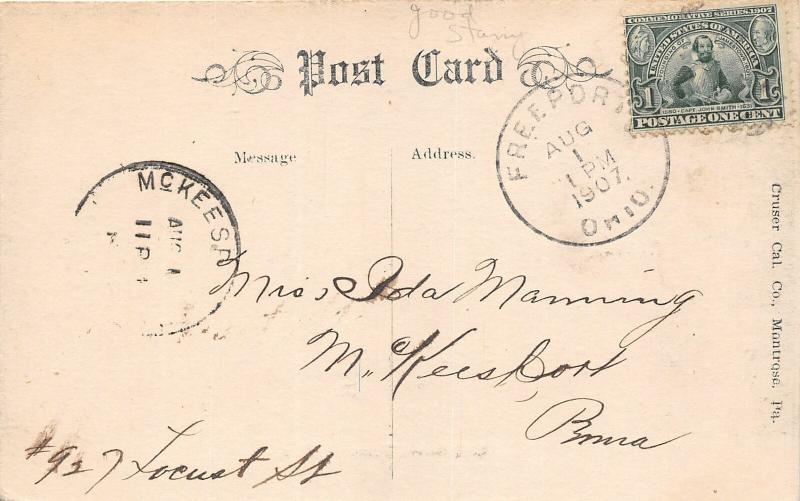 good
Stamp
COMMEMORATIVE SERIES, 1907
UNITED STATES OF AMERICA
FOUNDING OF JAMESTOWN 1607
1580 - CAPT. JOHN SMITH - 1631
1 1
POSTAGE ONE CENT
Post Card
FREEPORT
AUG
1
1 PM
1907.
OHIO.
Message
Address.
McKEESP
AUG 1
11 P
Cruser Cal. Co., Montrose, Pa.
Miss Ida Manning
McKeesport
Penna
#927 Locust St